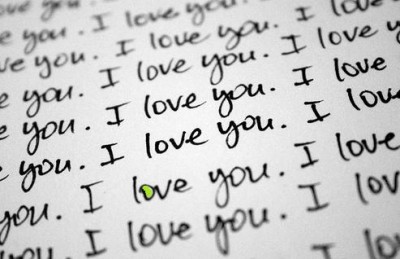 you.
e you. I love you.
ve you. I love you. I love
e you. I love you. I love y
e you. I love you. I love
e you. I love you. I lov
you. I love you. I love
you. I love you. I lov
I lo